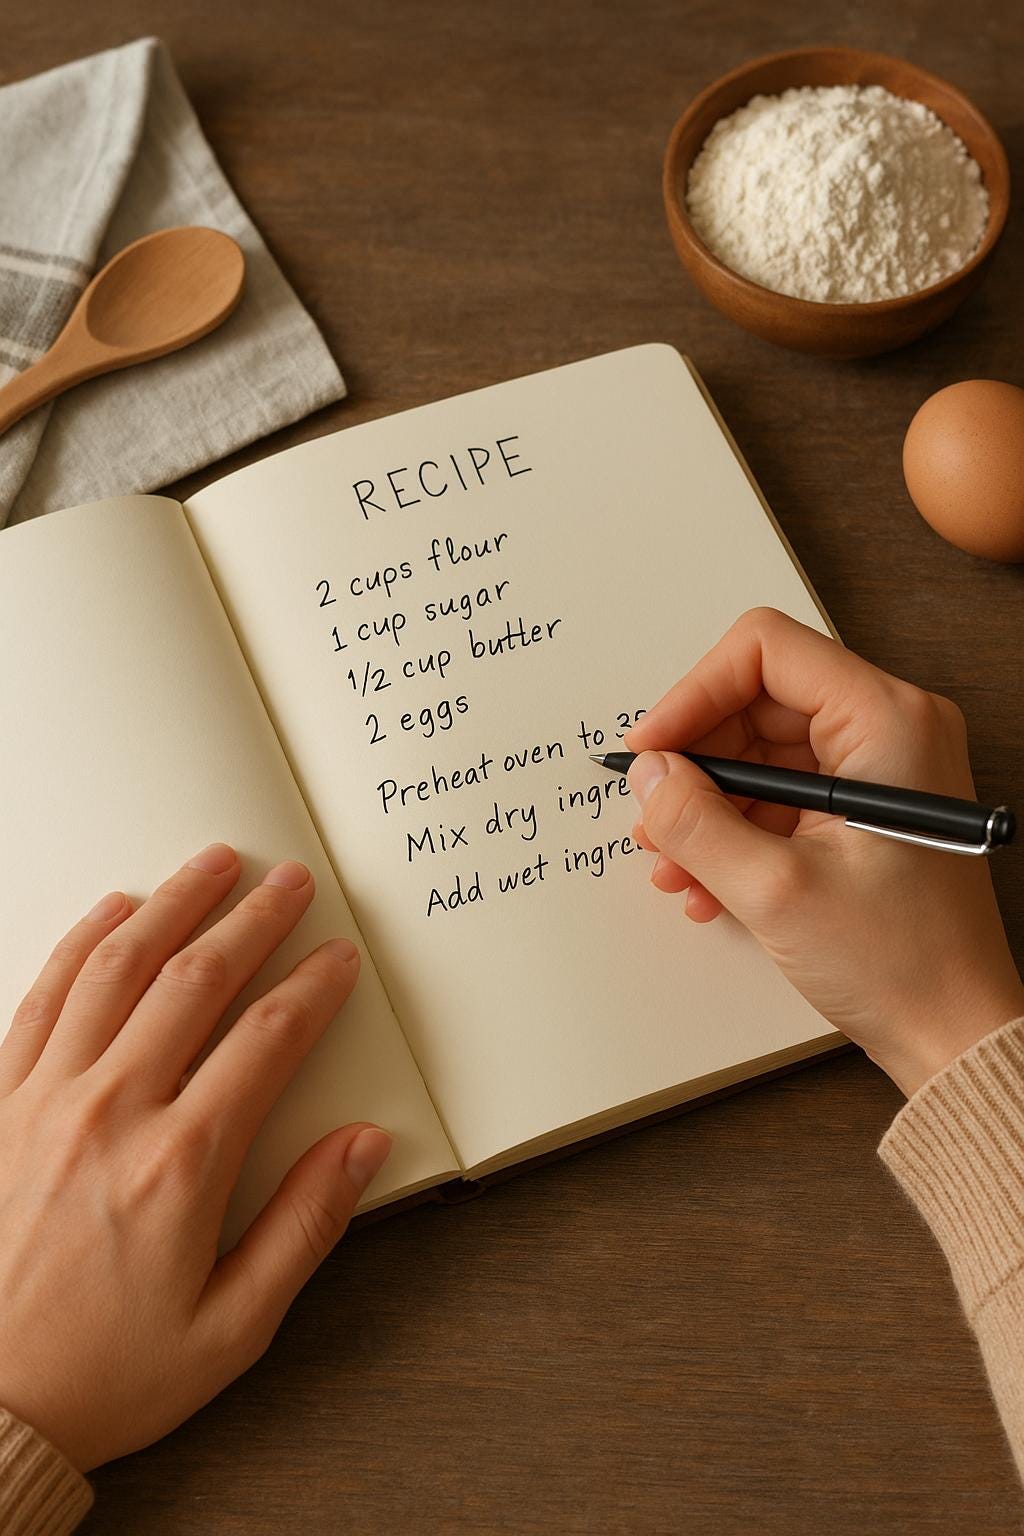 RECIPE
2 cups flour
1 cup sugar
1/2 cup butter
2 eggs
Preheat oven to
Mix dry
Add wet